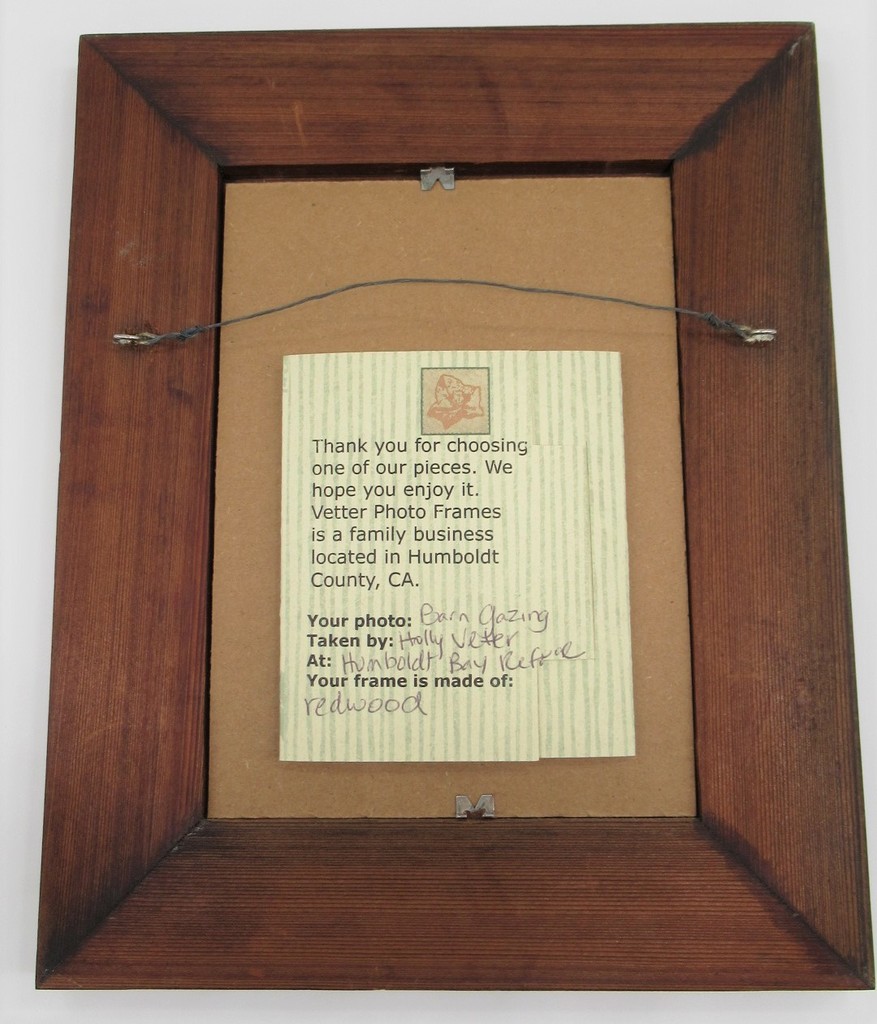 Thank you for choosing
one of our pieces. We
hope you enjoy it.
Vetter Photo Frames
is a family business
located in Humboldt
County, CA.
Your photo: Barn Gazing
Taken by: Holly Vetter
At: Humboldt Bay Refuge
Your frame is made of:
redwood